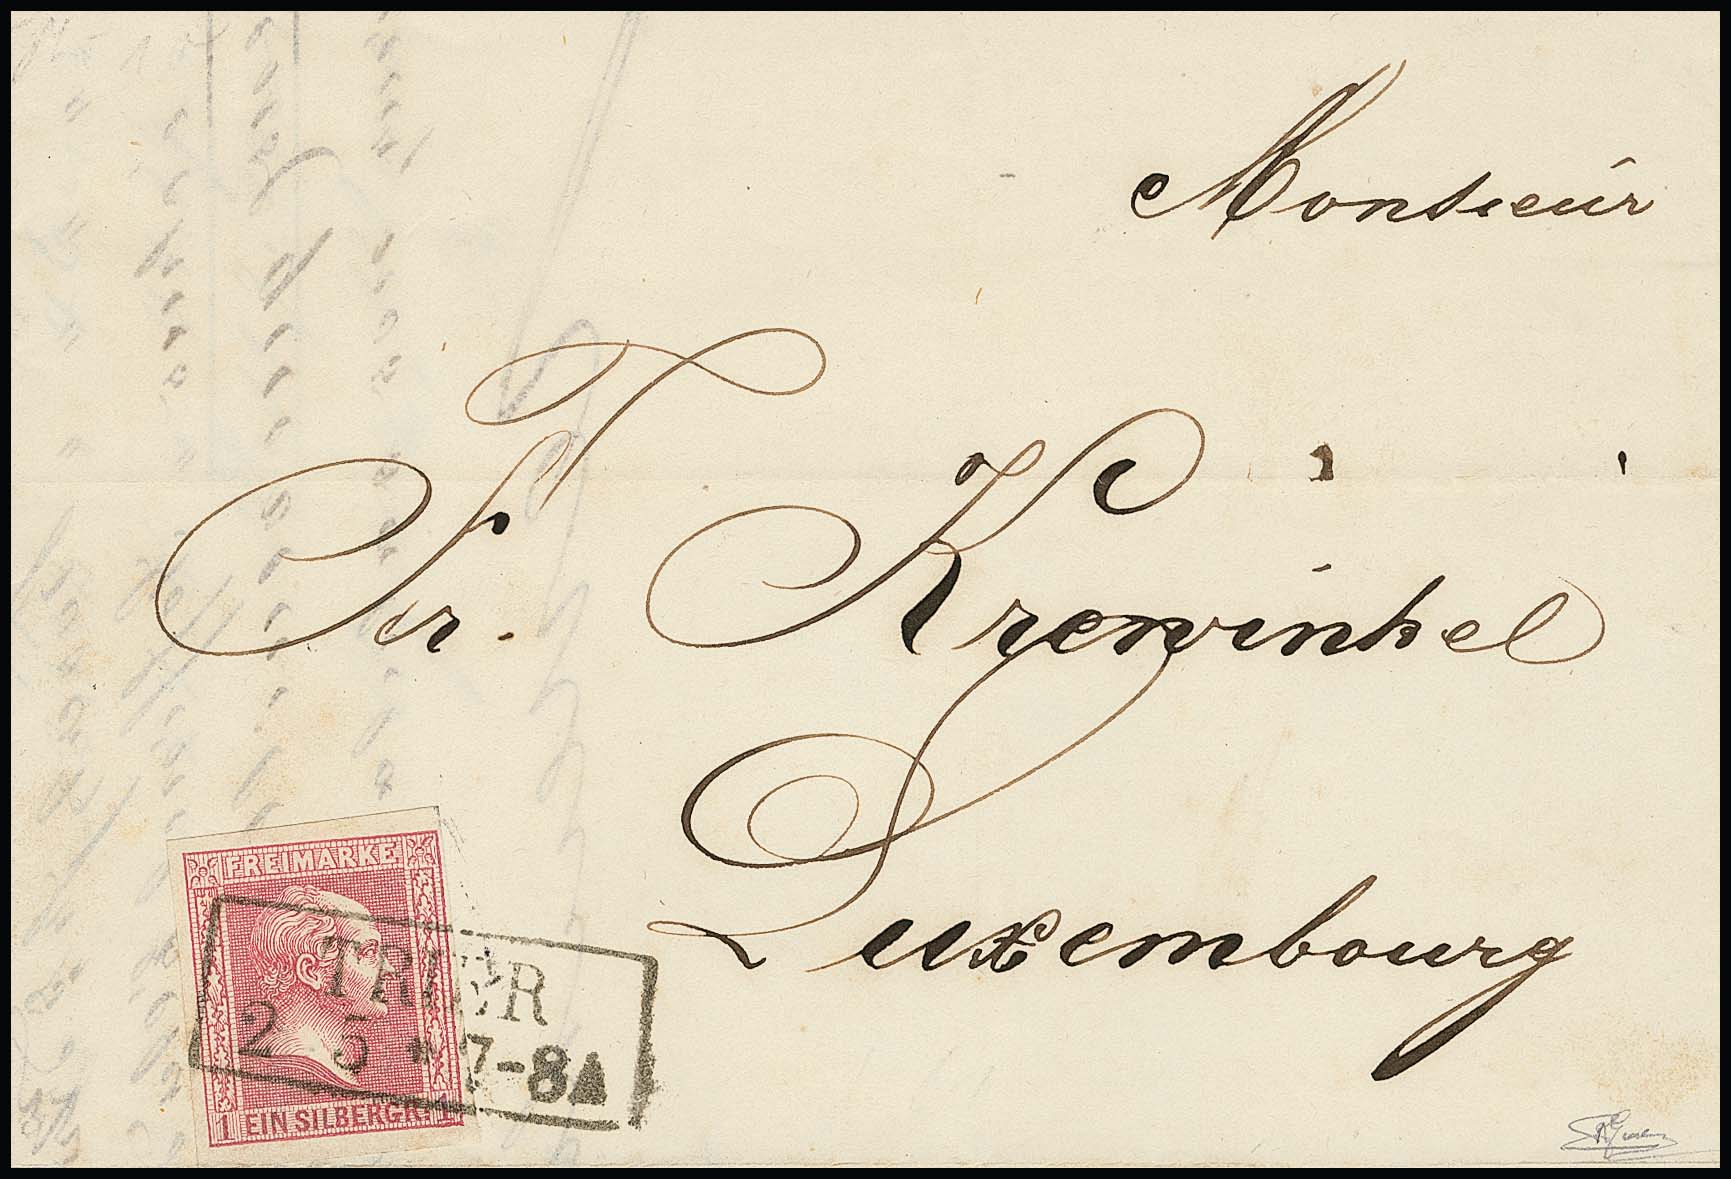 Monsieur
Fr. Krewinkel
Luxembourg
FREIMARKE
TRIER
2 5 * 7-8
1 EIN SILBERGR. 1